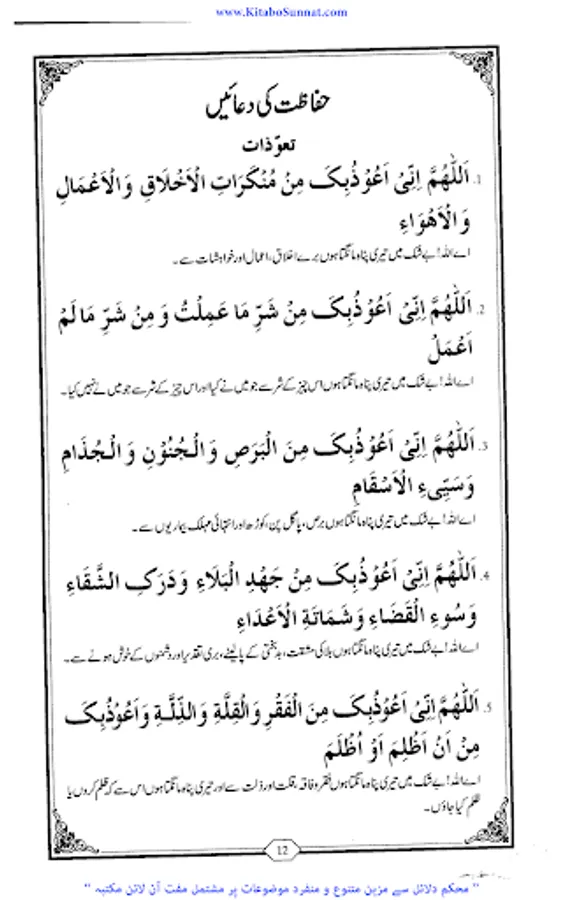 www.KitaboSunnat.com
حفاظت کی دعائیں
تعوّذات
1. اَللّٰهُمَّ اِنِّیْ اَعُوْذُبِکَ مِنْ مُنْکَرَاتِ الْاَخْلَاقِ وَالْاَعْمَالِ
وَالْاَهْوَاءِ
اے اللہ! بے شک میں تیری پناہ مانگتا ہوں برے اخلاق، اعمال اور خواہشات سے۔
2. اَللّٰهُمَّ اِنِّیْ اَعُوْذُبِکَ مِنْ شَرِّ مَا عَمِلْتُ وَ مِنْ شَرِّ مَا لَمْ
اَعْمَلْ
اے اللہ! بے شک میں تیری پناہ مانگتا ہوں اس چیز کے شر سے جو میں نے کیا اور اس چیز کے شر سے جو میں نے نہیں کیا۔
3. اَللّٰهُمَّ اِنِّیْ اَعُوْذُبِکَ مِنَ الْبَرَصِ وَالْجُنُوْنِ وَالْجُذَامِ
وَسَیِّیءِ الْاَسْقَامِ
اے اللہ! بے شک میں تیری پناہ مانگتا ہوں برص، پاگل پن، کوڑھ اور انتہائی مہلک بیماریوں سے۔
4. اَللّٰهُمَّ اِنِّیْ اَعُوْذُبِکَ مِنْ جَهْدِ الْبَلَاءِ وَدَرَکِ الشَّقَاءِ
وَسُوءِ الْقَضَاءِ وَشَمَاتَةِ الْاَعْدَاءِ
اے اللہ! بے شک میں تیری پناہ مانگتا ہوں بلا کی مشقت، بدبختی کے پالینے، بری تقدیر اور دشمنوں کے خوش ہونے سے۔
5. اَللّٰهُمَّ اِنِّیْ اَعُوْذُبِکَ مِنَ الْفَقْرِ وَالْقِلَّةِ وَالذِّلَّةِ وَاَعُوْذُبِکَ
مِنْ اَنْ اَظْلِمَ اَوْ اُظْلَمَ
اے اللہ! بے شک میں تیری پناہ مانگتا ہوں فقر و فاقہ، قلت اور ذلت سے اور تیری پناہ مانگتا ہوں اس سے کہ ظلم کروں یا
ظلم کیا جاؤں۔
12
" محکم دلائل سے مزین متنوع و منفرد موضوعات پر مشتمل مفت آن لائن مکتبہ "